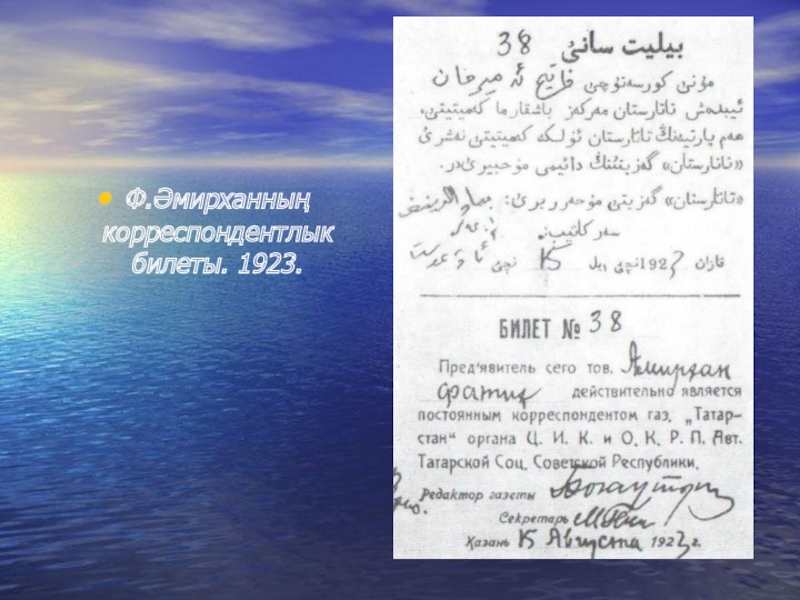 Ф.Әмирханның
корреспондентлык
билеты. 1923.
بيليت سانیٔ 38
مۇنی كورسه‌تۇچی فاتیح ئه‌میرخان
تاتارستان مه‌ركه‌ز باشقارما كه‌میتیتی،
هه‌م پارتیه‌نڭ تاتارستان ئۇلكه كه‌میتیتی نه‌شری
«تاتارستان» گه‌زیتنڭ دائیمی مۇخبیری‌در.
«تاتارستان» گه‌زیتی مۇحه‌رریری:
سه‌ركاتیب:
قازان 1923نچی یل 15 نچی ئاوغوست
БИЛЕТ № 38
Пред'явитель сего тов. Амирхан
Фатих действительно является
постоянным корреспондентом газ. „Татар-
стан" органа Ц. И. К. и О. К. Р. П. Авт.
Татарской Соц. Советской Республики.
Редактор газеты
Секретарь
Казань 15 Августа 1923 г.